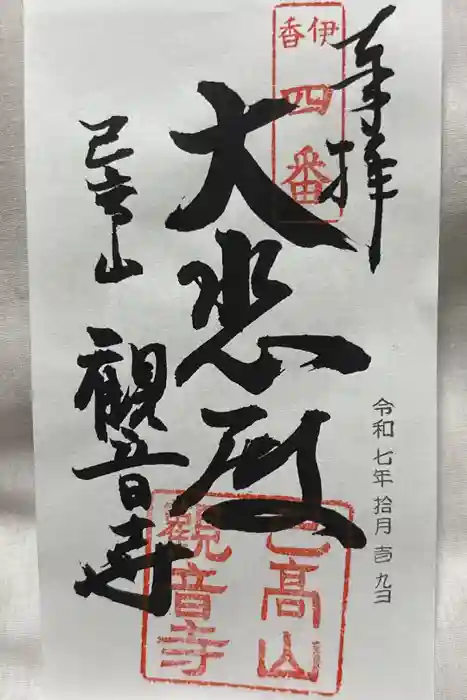 奉拝
令和七年拾月壱九日
伊香
四番
大悲殿
己高山
觀音寺
己高山
觀音寺